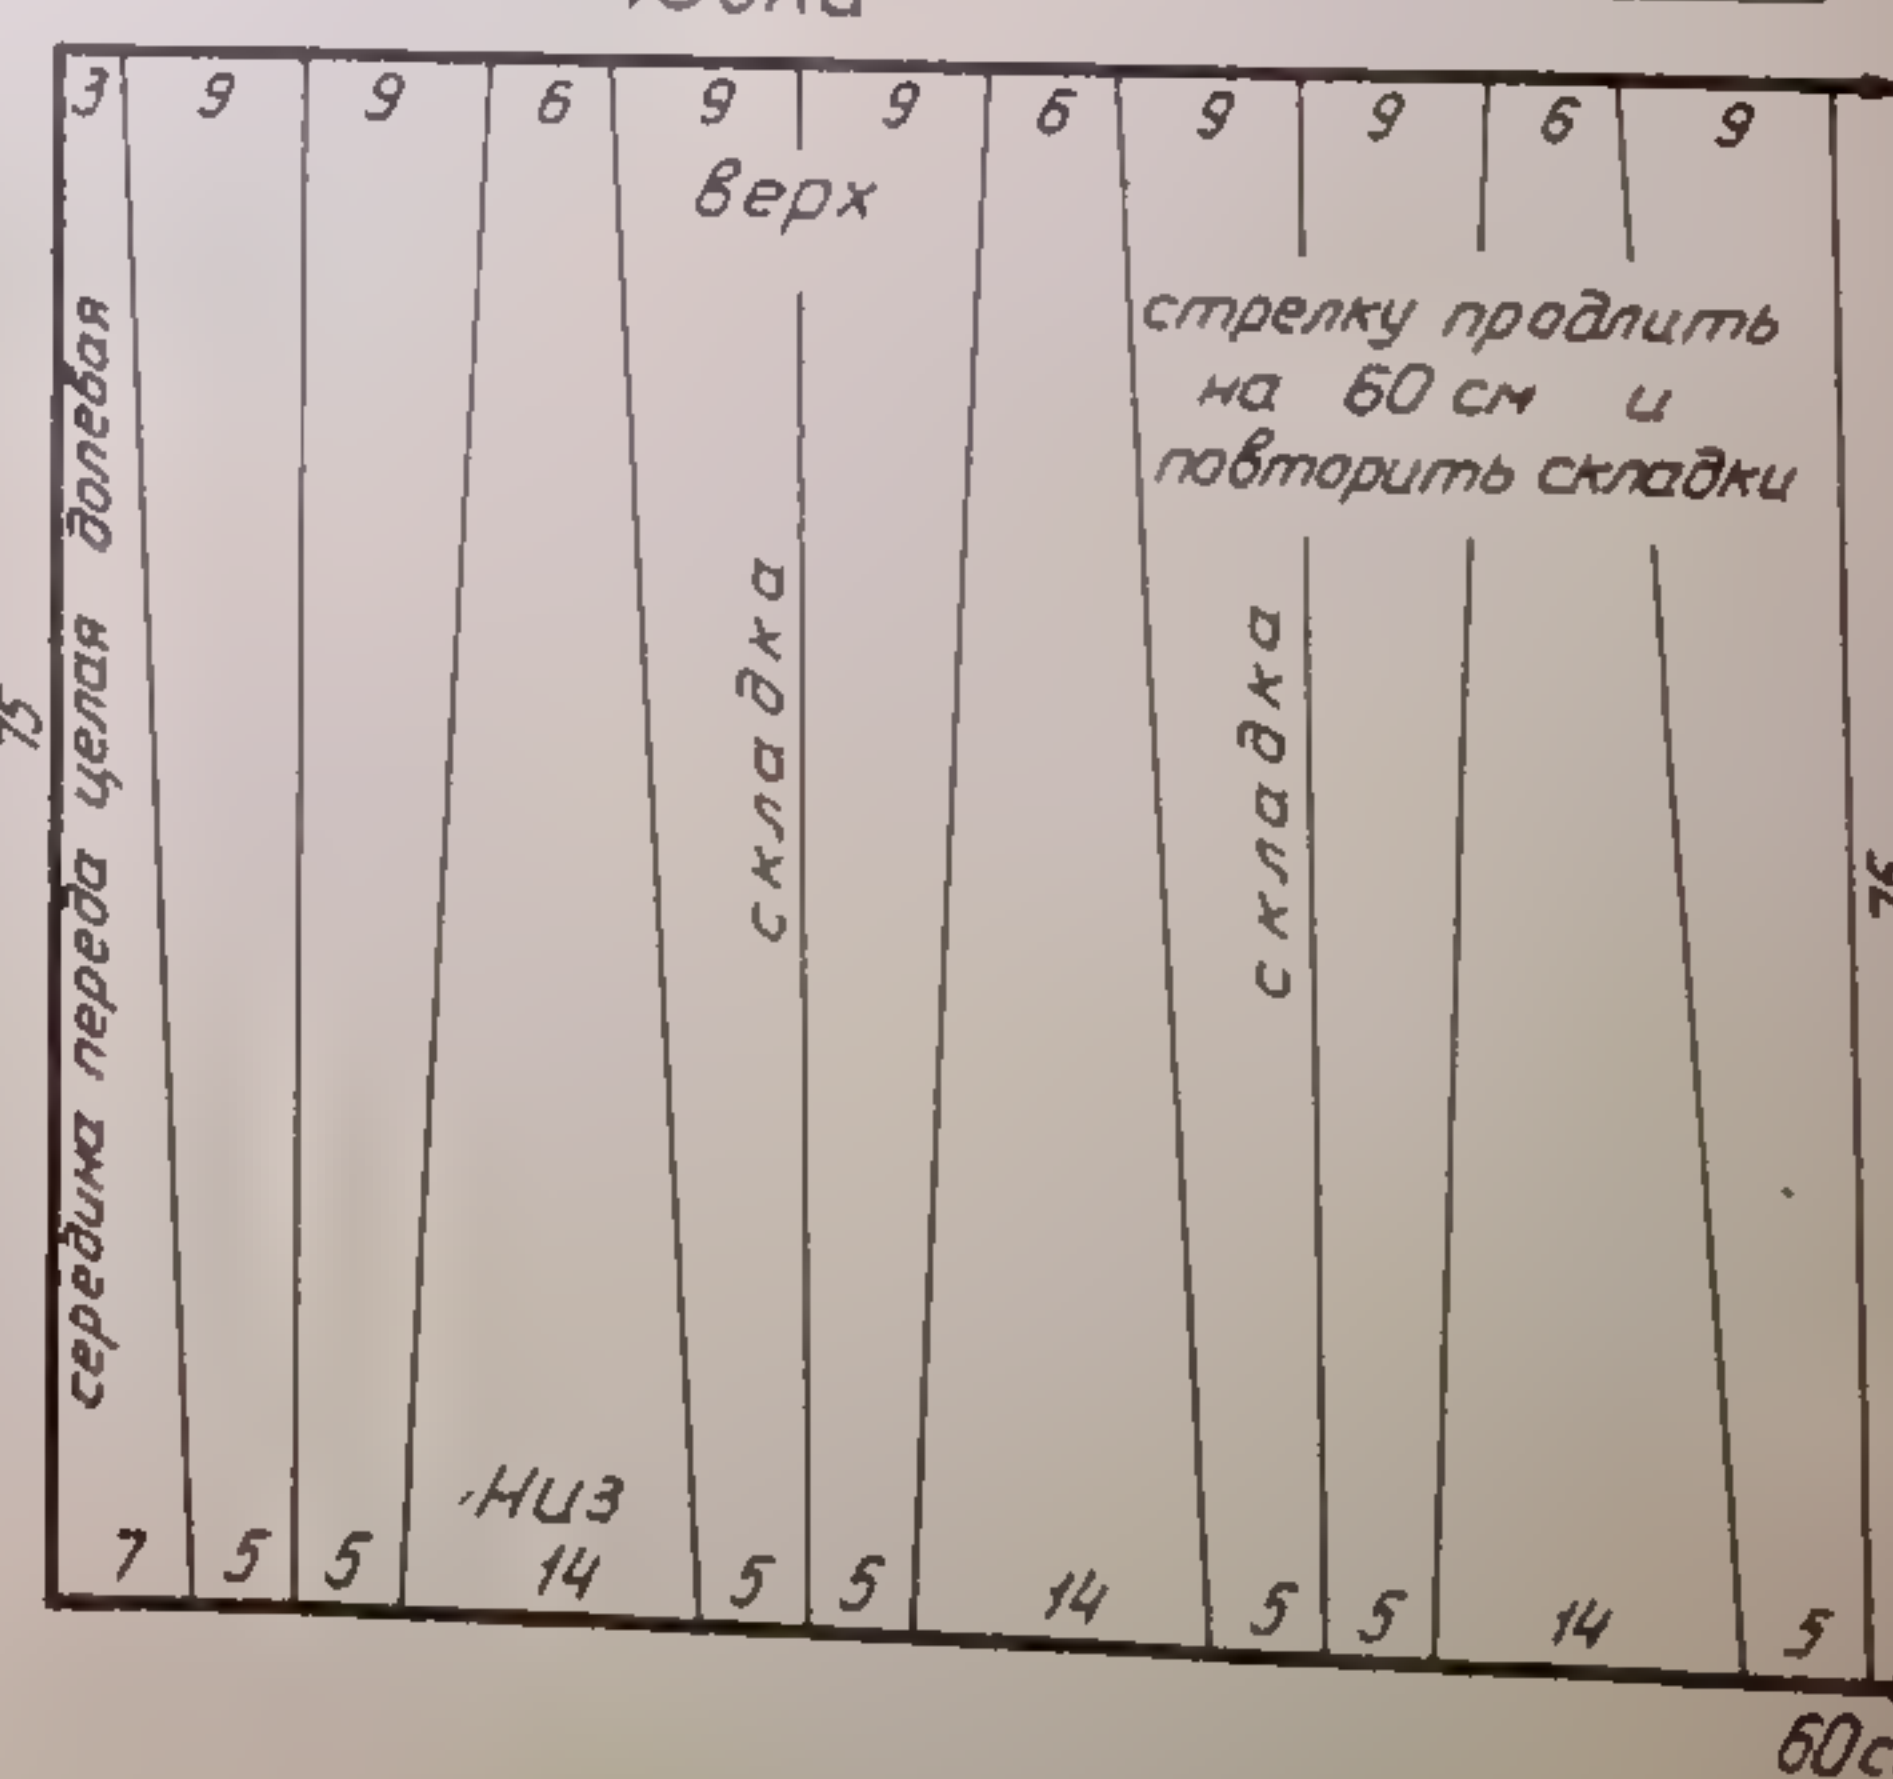 3 9 9 6 9 9 6 9 9 6 9
верх
стрелку продлить
на 60 см и
повторить складки
середина переда целая долевая
складка
складка
75
76
низ
7 5 5 14 5 5 14 5 5 14 5
60с